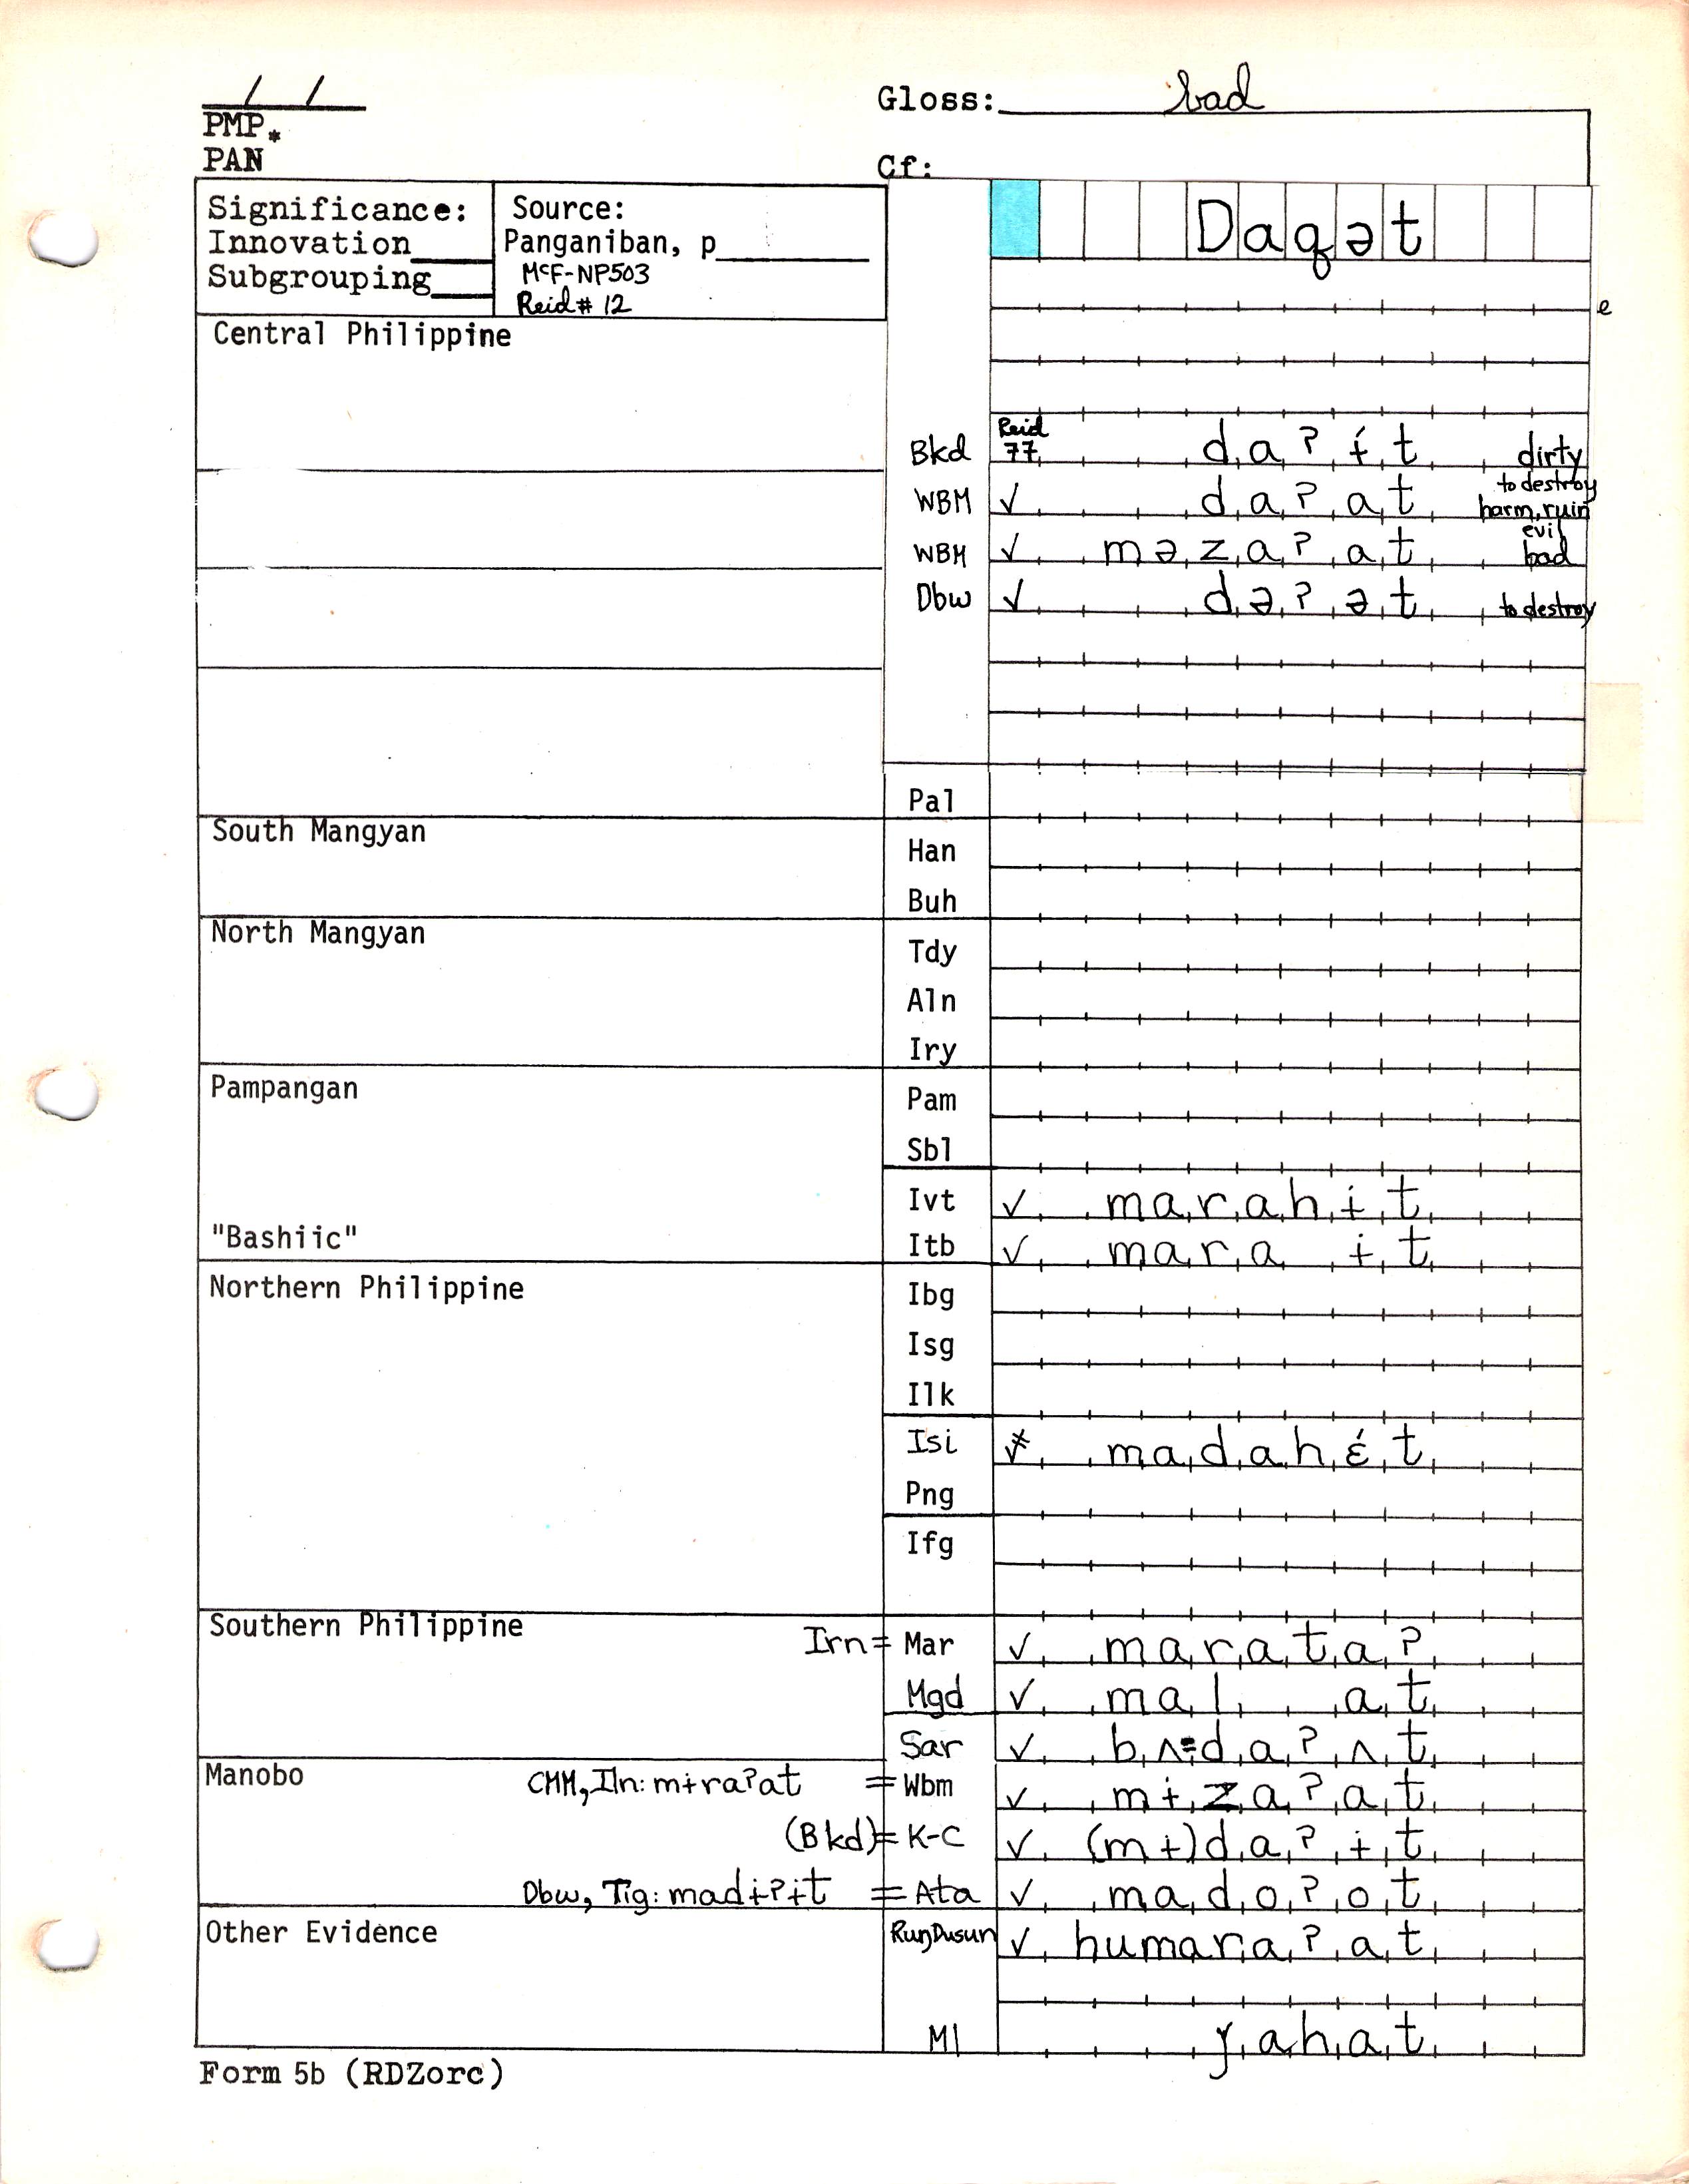 / /
Gloss: bad
PMP*
PAN
Cf:
Significance:
Innovation
Subgrouping
Source:
Panganiban, p
McF-NP503
Reid # 12
Daqət
e
Central Philippine
Bkd Reid 77 daʔɨ́t dirty
WBM ✓ daʔat to destroy harm, ruin
WBM ✓ məzaʔat evil bad
Dbw ✓ dəʔət to destroy
Pal
South Mangyan
Han
Buh
North Mangyan
Tdy
Aln
Iry
Pampangan
Pam
Sbl
Ivt ✓ marahɨt
"Bashiic"
Itb ✓ mara ɨt
Northern Philippine
Ibg
Isg
Ilk
Isi madahɛ́t
Png
Ifg
Southern Philippine
Irn = Mar ✓ marataʔ
Mgd ✓ mal at
Sar ✓ bʌ=daʔʌt
Manobo
CMM, Iln: mɨraʔat = Wbm ✓ mɨzaʔat
(Bkd) = K-C ✓ (mɨ)daʔɨt
Dbw, Tig: madɨʔɨt = Ata ✓ madoʔot
Other Evidence
RuŋDusun ✓ humaraʔat
Ml ǰahat
Form 5b (RDZorc)